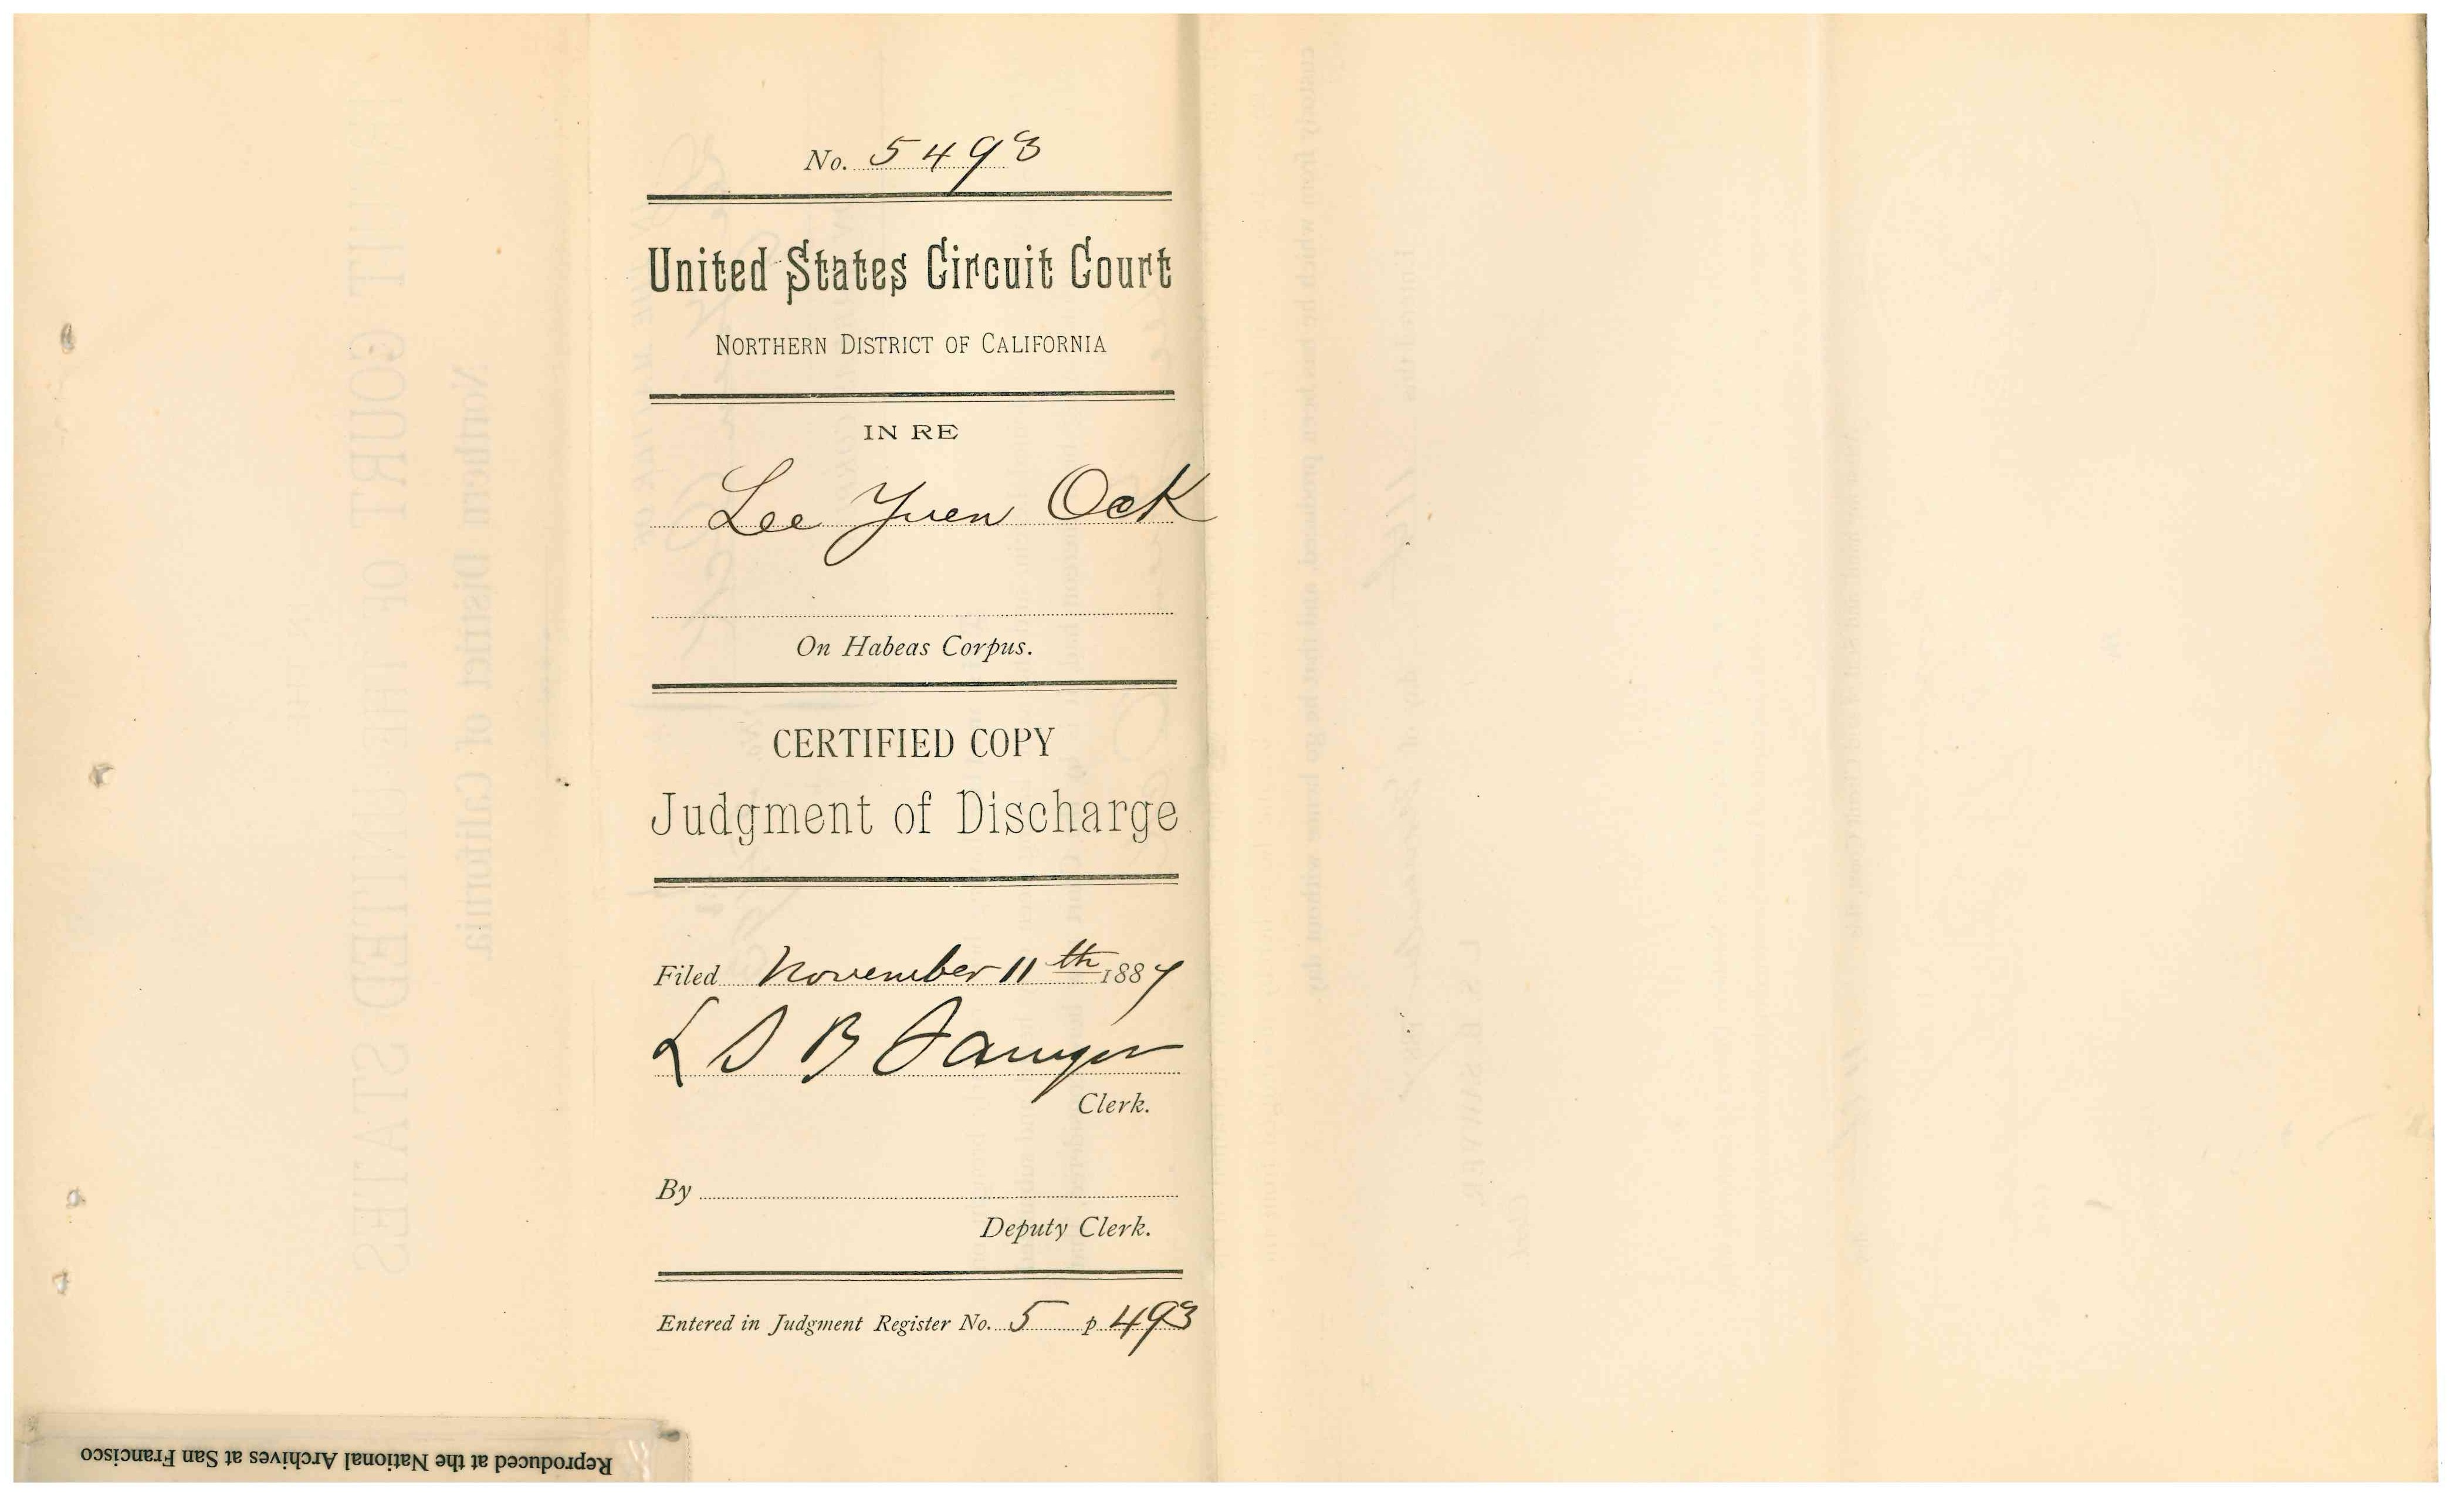 No. 5493
United States Circuit Court
NORTHERN DISTRICT OF CALIFORNIA
IN RE
Lee Yuen Ock
On Habeas Corpus.
CERTIFIED COPY
Judgment of Discharge
Filed November 11th 1887
L S B Sawyer
Clerk.
By
Deputy Clerk.
Entered in Judgment Register No. 5 p. 493
Reproduced at the National Archives at San Francisco